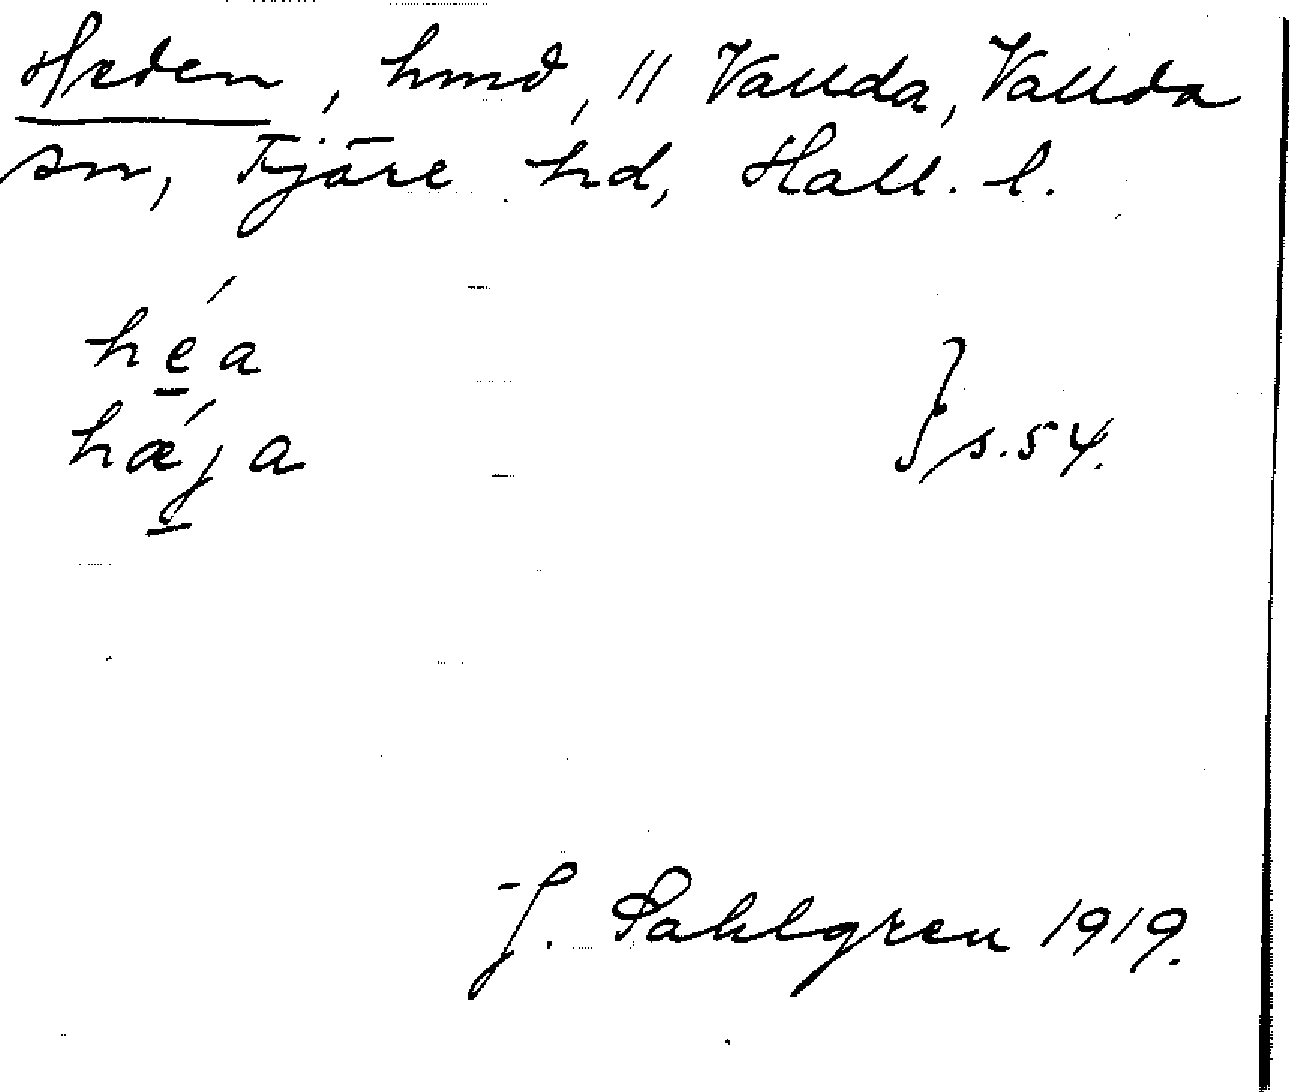 Heden, hmd, 11 Vallda, Vallda
sn, Fjäre hd, Hall. l.
hé̲a
hǽj̲a } s. 54.
J. Sahlgren 1919.